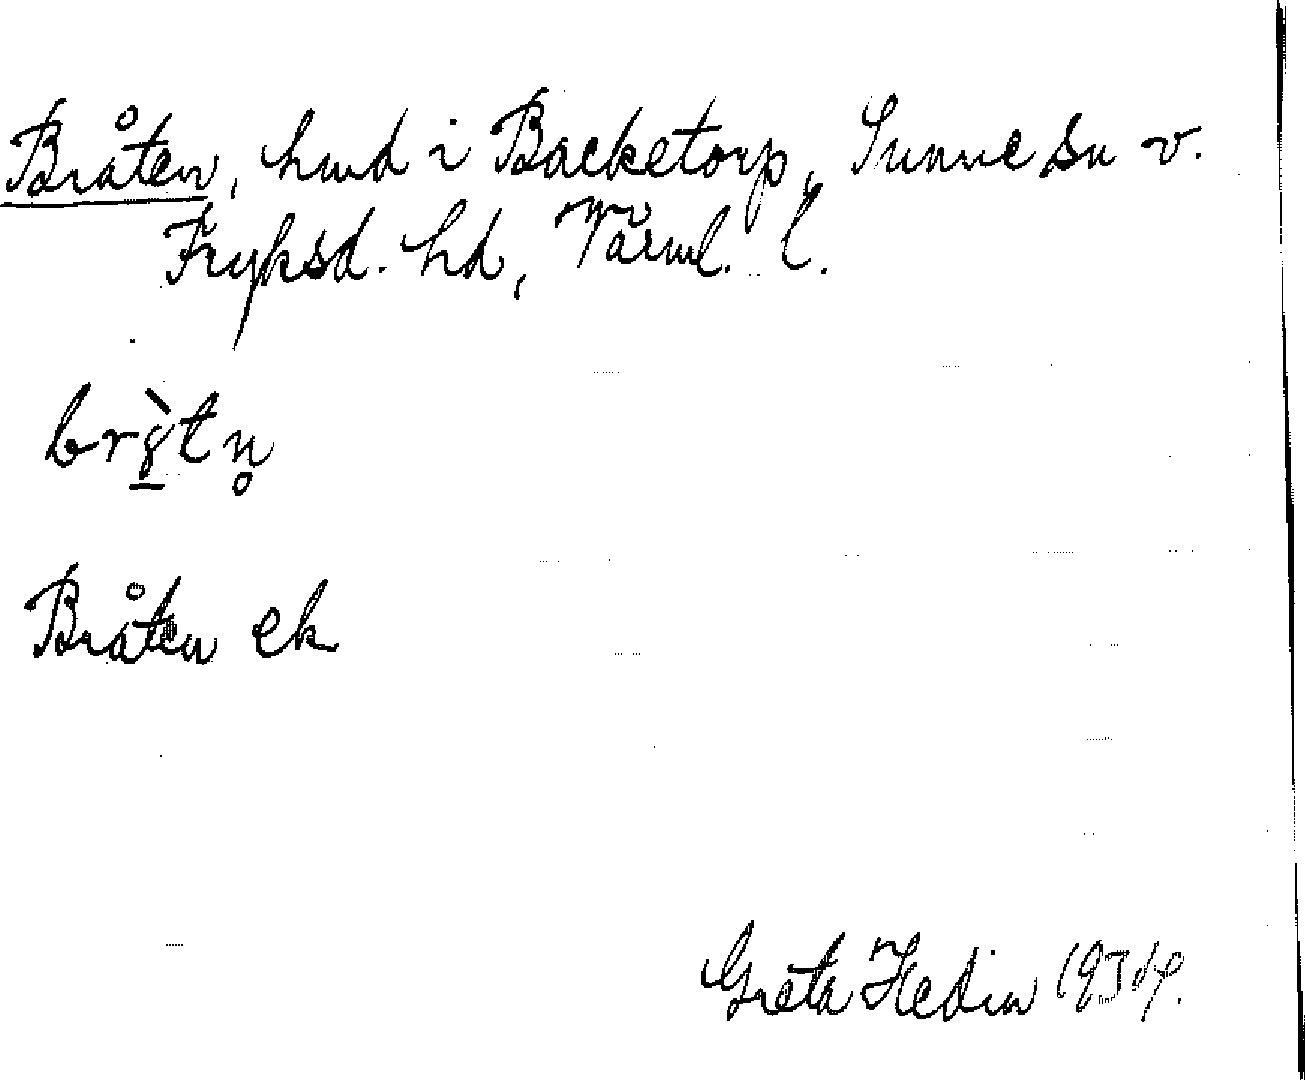 Bråten, hmd i Backetorp, Sunne sn v.
Fryksd. hd, Värml. l.
brɣ̠̀tn̥
Bråten ek
Greta Hedin 1934.